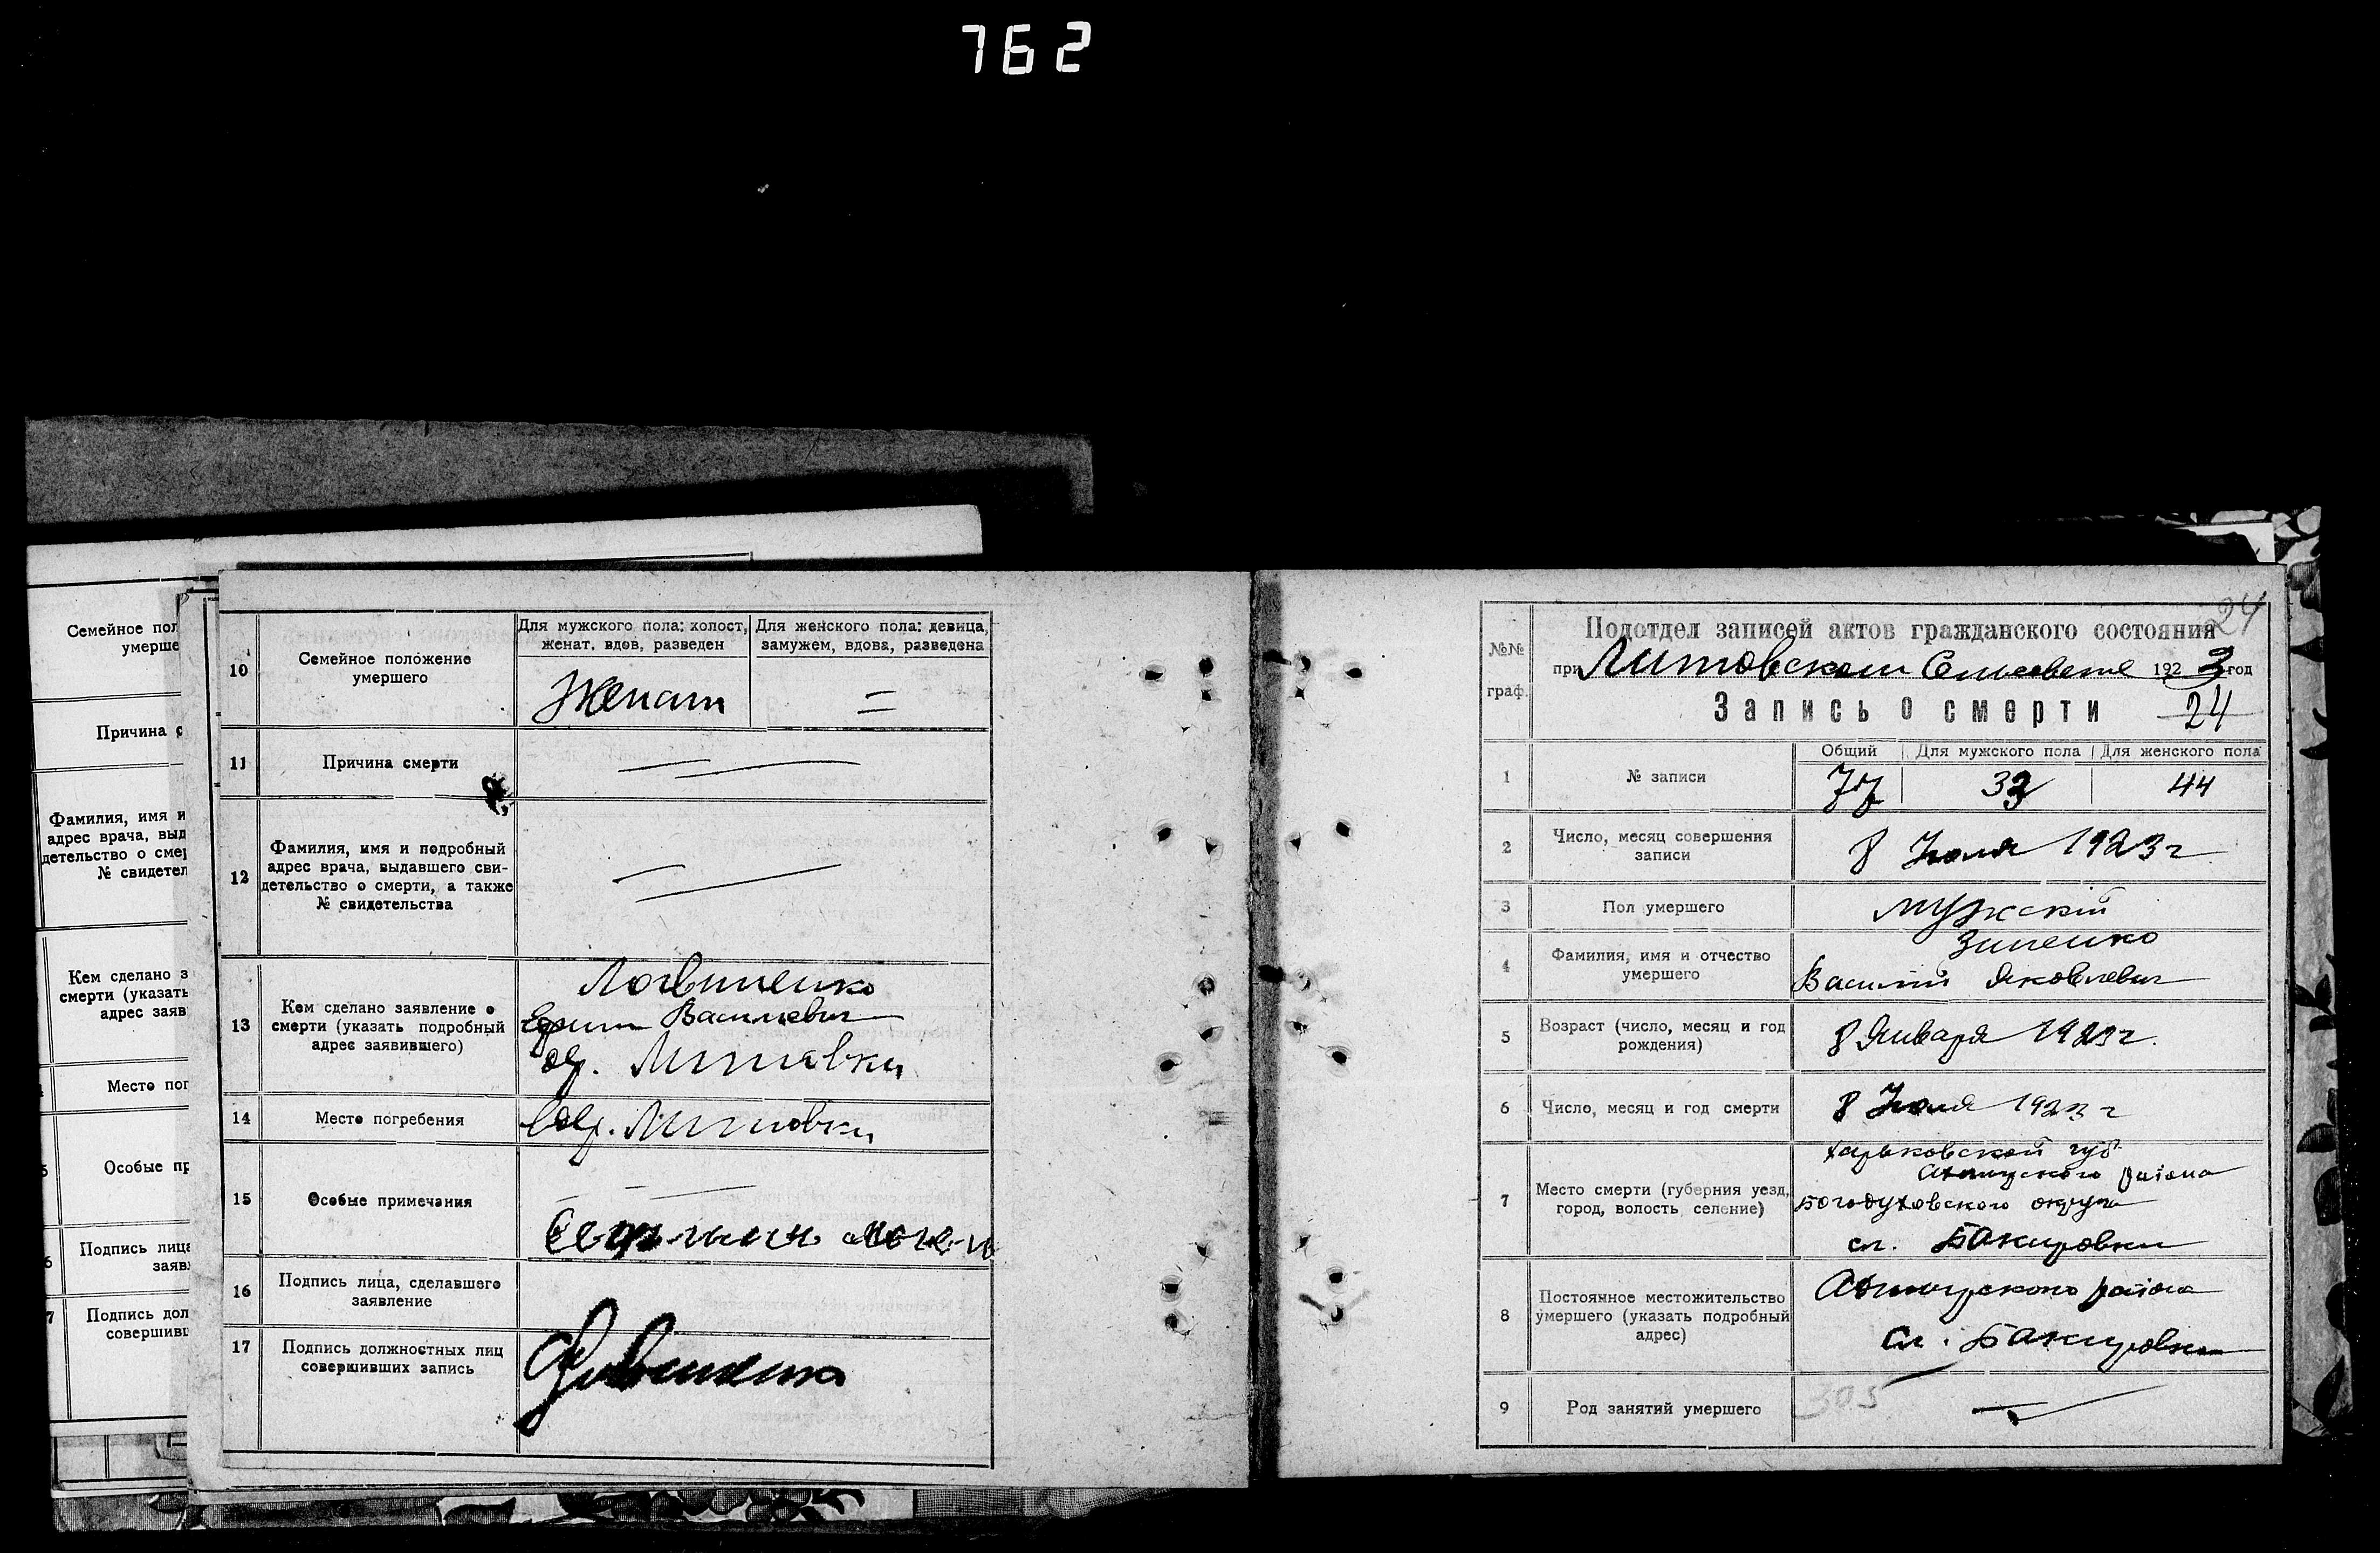 762
Семейное пол
умерше
Причина с
Фамилия, имя и
адрес врача, выд
детельство о смер
№ свидетел
Кем сделано з
смерти (указать
адрес заяв
Место пог
Особые пр
Подпись лица
заяв
7
Подпись дол
совершивш
10
Семейное положение
умершего
Для мужского пола: холост,
женат, вдов, разведен
Для женского пола: девица,
замужем, вдова, разведена
Женат
=
11
Причина смерти
12
Фамилия, имя и подробный
адрес врача, выдавшего сви-
детельство о смерти, а также
№ свидетельства
13
Кем сделано заявление о
смерти (указать подробный
адрес заявившего)
Логвиненко
Ефим Василевич
14
Место погребения
15
Особые примечания
16
Подпись лица, сделавшего
заявление
17
Подпись должностных лиц
совершивших запись
24
№№
граф.
Подотдел записей актов гражданского состояния
при Литовском Сельсовете 1923 год
Запись о смерти
24
1
№ записи
Общий
Для мужского пола
Для женского пола
77
33
44
2
Число, месяц совершения
записи
8 Июля 1923 г
3
Пол умершего
мужскій
4
Фамилия, имя и отчество
умершего
Зиненко
Василий Яковлевич
5
Возраст (число, месяц и год
рождения)
8 Января 1923 г.
6
Число, месяц и год смерти
8 Июля 1923 г
7
Место смерти (губерния уезд,
город, волость, селение)
Харьковской губ
района
Богодуховского округа
сл. Бакировки
8
Постоянное местожительство
умершего (указать подробный
адрес)
района
сл. Бакировки
9
Род занятий умершего
305